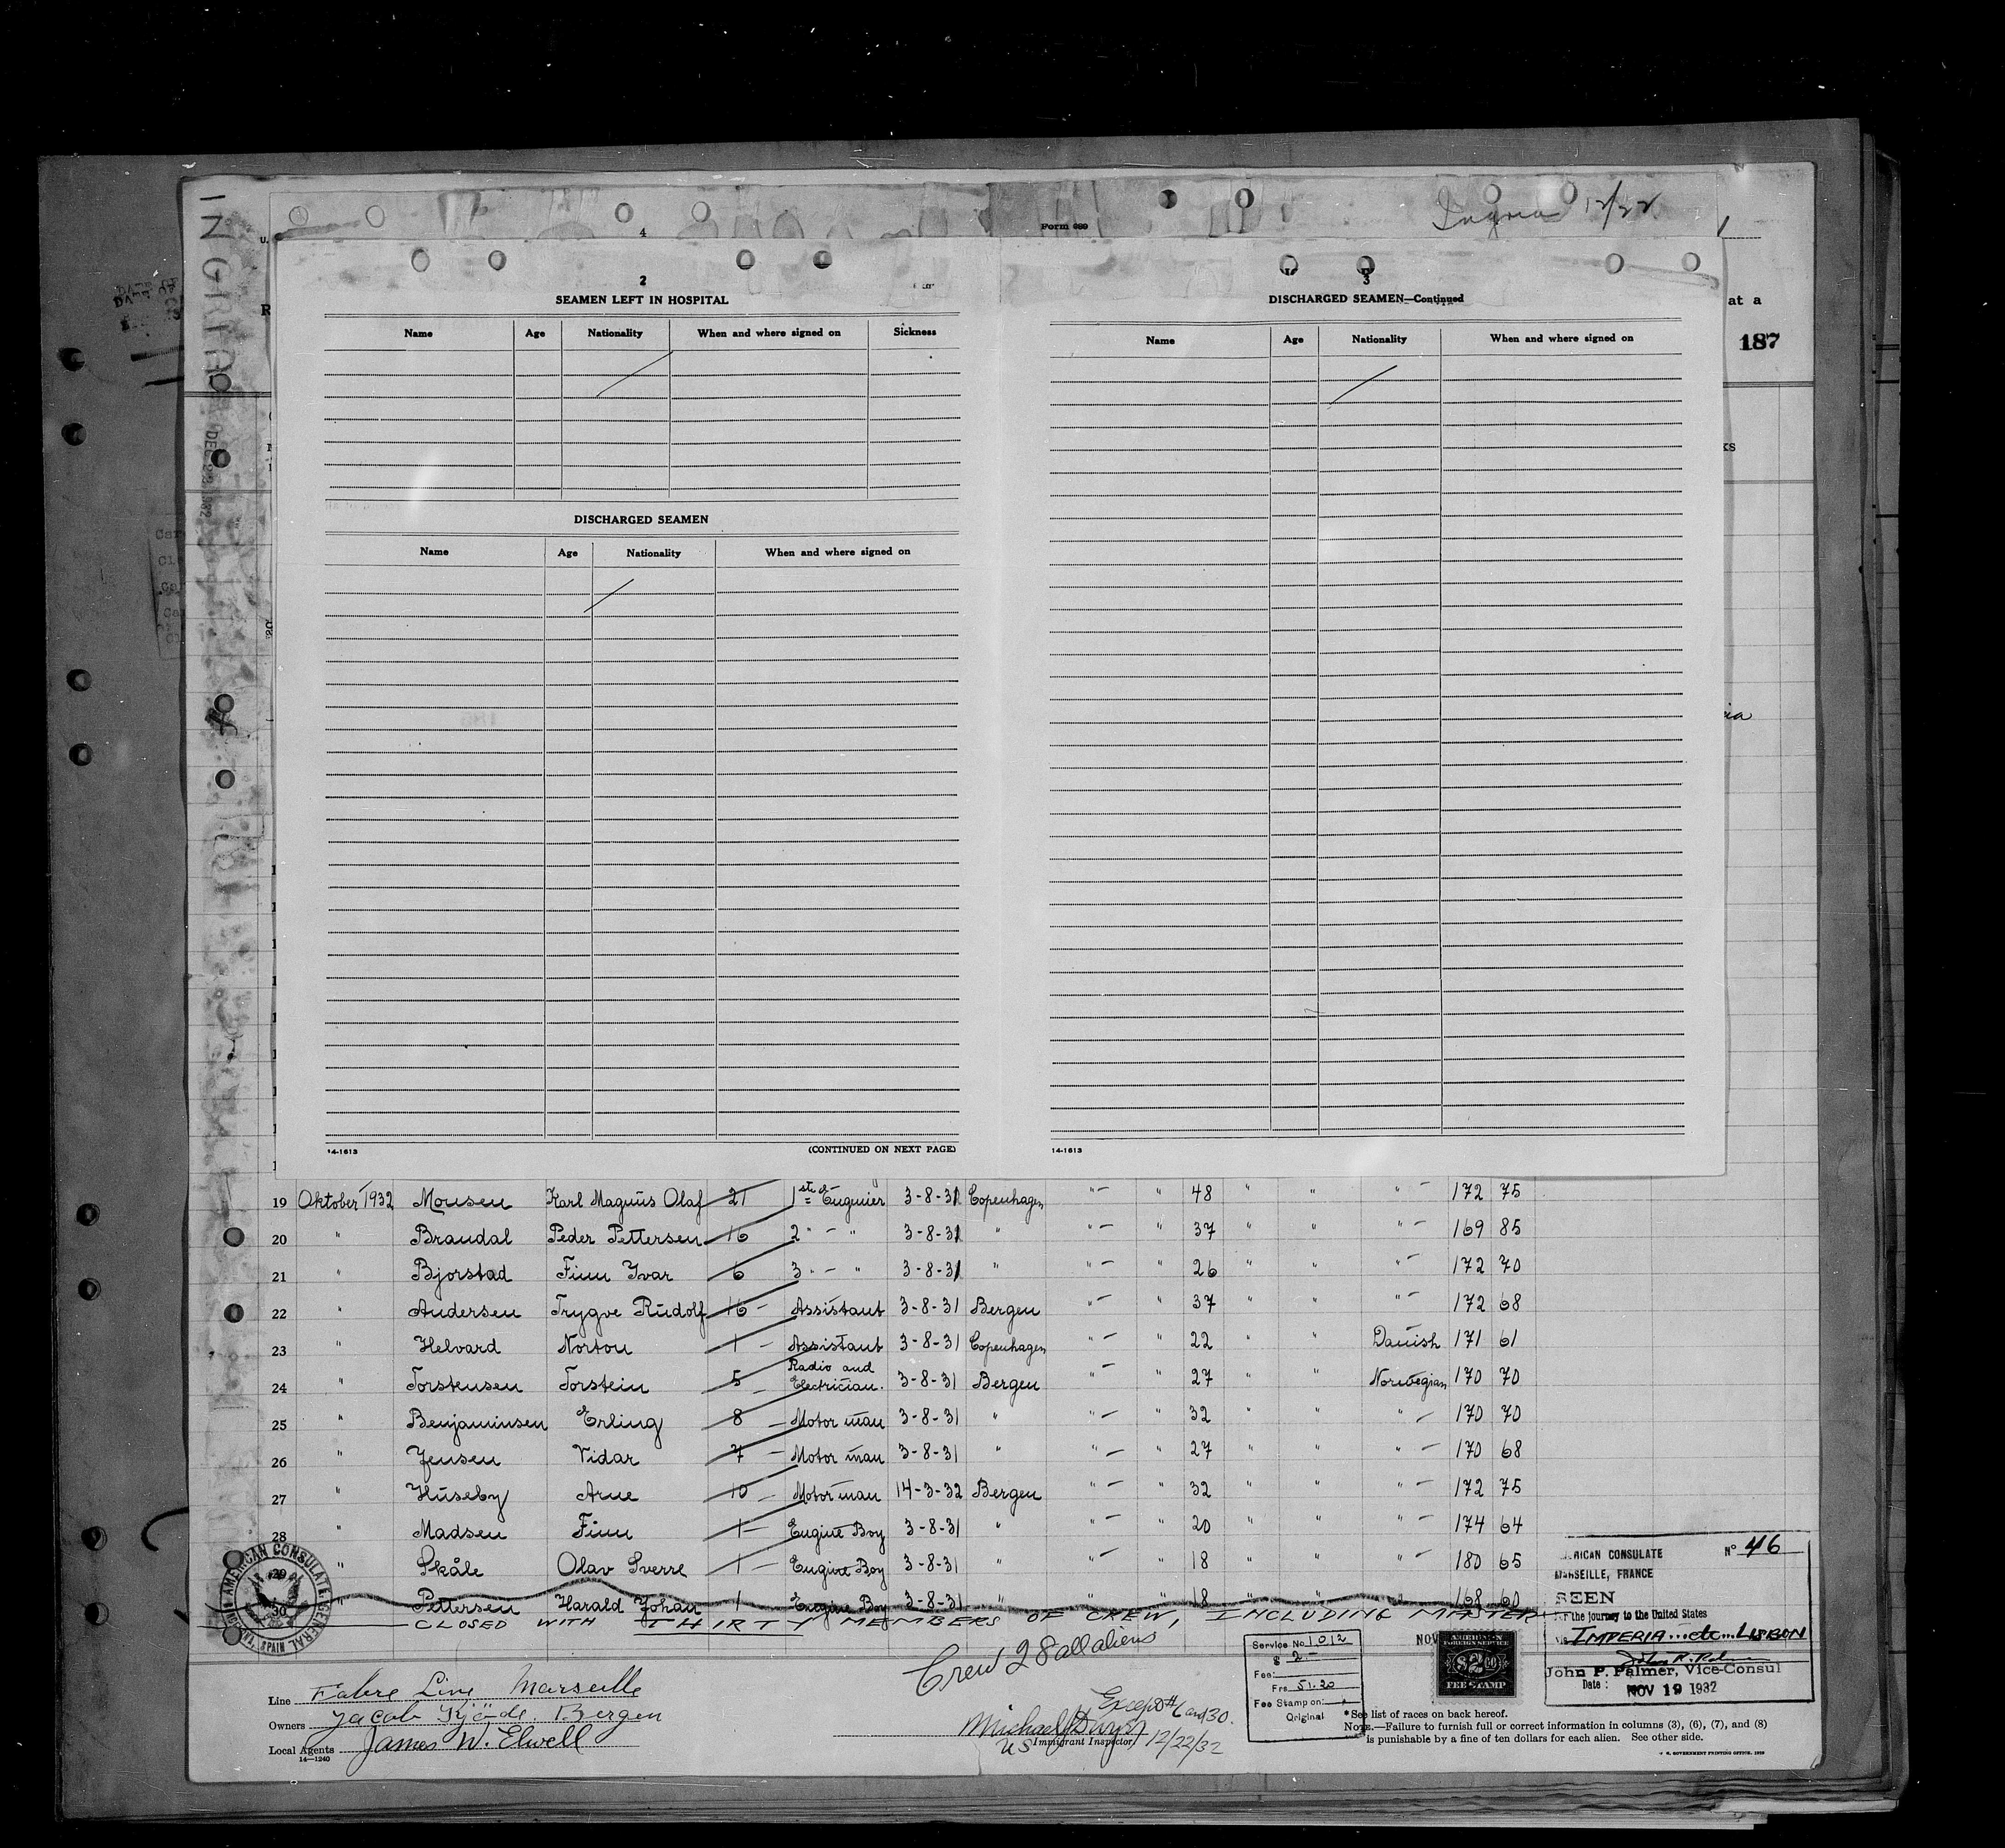 Ingria 12/32
Form 689
4
at a
187
2
SEAMEN LEFT IN HOSPITAL
Name Age Nationality When and where signed on Sickness
DISCHARGED SEAMEN
Name Age Nationality When and where signed on
14-1613 (CONTINUED ON NEXT PAGE)
3
DISCHARGED SEAMEN—Continued
Name Age Nationality When and where signed on
14-1613
19 Oktober 1932 Monsen Karl Magnus Olaf 21 1ste Enginier 3-8-31 Copenhagen "– " 48 " " "– 172 75
20 " Brandal Peder Pettersen 16 2 " – " 3-8-31 " "– " 37 " " "– 169 85
21 " Bjorstad Finn Ivar 6 3 " – " 3-8-31 " "– " 26 " " "– 172 70
22 " Andersen Trygve Rudolf 16 – Assistant 3-8-31 Bergen "– " 37 " " "– 172 68
23 " Helvard Norton 1 – Assistant 3-8-31 Copenhagen "– " 22 " " Danish 171 61
24 " Torstensen Torstein 5 – Radio and Electrician. 3-8-31 Bergen "– " 27 " " Norwegian 170 70
25 " Benjaminsen Erling 8 – Motor man 3-8-31 " "– " 32 " " "– 170 70
26 " Jensen Vidar 7 – Motor man 3-8-31 " "– " 27 " " "– 170 68
27 " Huseby Arne 10 – Motor man 14-3-32 Bergen "– " 32 " " "– 172 75
28 " Madsen Finn 1 – Engine Boy 3-8-31 " "– " 20 " " "– 174 64
29 " Skåle Olav Sverre 1 – Engine Boy 3-8-31 " "– " 18 " " "– 180 65
30 " Pettersen Harald Johan 1 Engine Boy 3-8-31 " 18 " " 168 60
CLOSED WITH THIRTY MEMBERS OF CREW, INCLUDING MASTER
AMERICAN CONSULATE GENERAL
SPAIN
AMERICAN CONSULATE
Nº 46
MARSEILLE, FRANCE
SEEN
For the journey to the United States
Via IMPERIA...etc...LISBON
John P. Palmer, Vice-Consul
Date: NOV 19 1932
Crew 28 all aliens
Except #6 and 30.
12/22/32
US Immigrant Inspector
Service No. 1012
$ 2–
Fee:
Frs 51.20
Fee Stamp on:
Original
NOV
AMERICAN
FOREIGN SERVICE
$2 00
FEE STAMP
Line Fabre Line Marseille
Owners Jacob Kjöde. Bergen
Local Agents James W. Elwell
14—1240
*See list of races on back hereof.
NOTE.—Failure to furnish full or correct information in columns (3), (6), (7), and (8)
is punishable by a fine of ten dollars for each alien. See other side.
U. S. GOVERNMENT PRINTING OFFICE